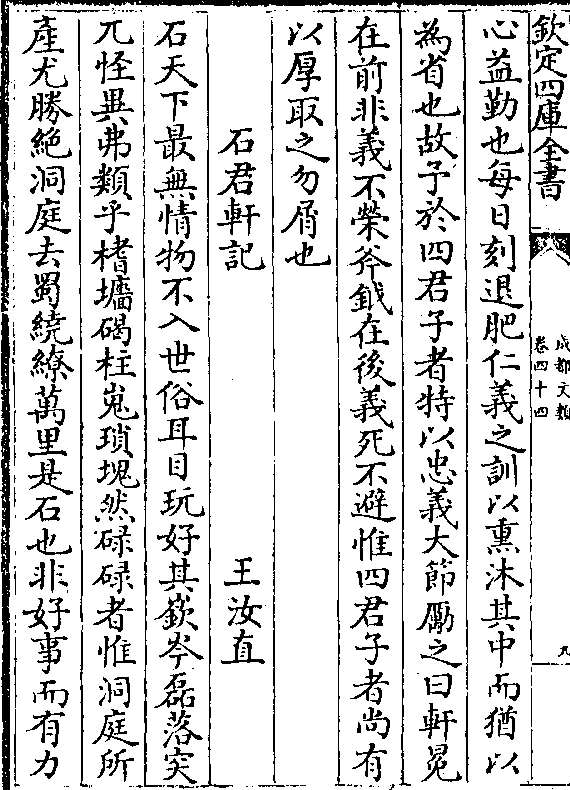 欽定四庫全書
成都文類
卷四十四
九
心益勤也每日刻退肥仁義之訓以熏沐其中而猶以
為省也故予於四君子者特以忠義大節勵之曰軒冕
在前非義不榮斧鉞在後義死不避惟四君子者尚有
以厚取之勿屑也
石君軒記
王汝直
石天下最無情物不入世俗耳目玩好其嶔岑磊落突
兀怪異弗類乎楮壖碣柱嵬瑣塊然碌碌者惟洞庭所
產尤勝絶洞庭去蜀繞繚萬里是石也非好事而有力